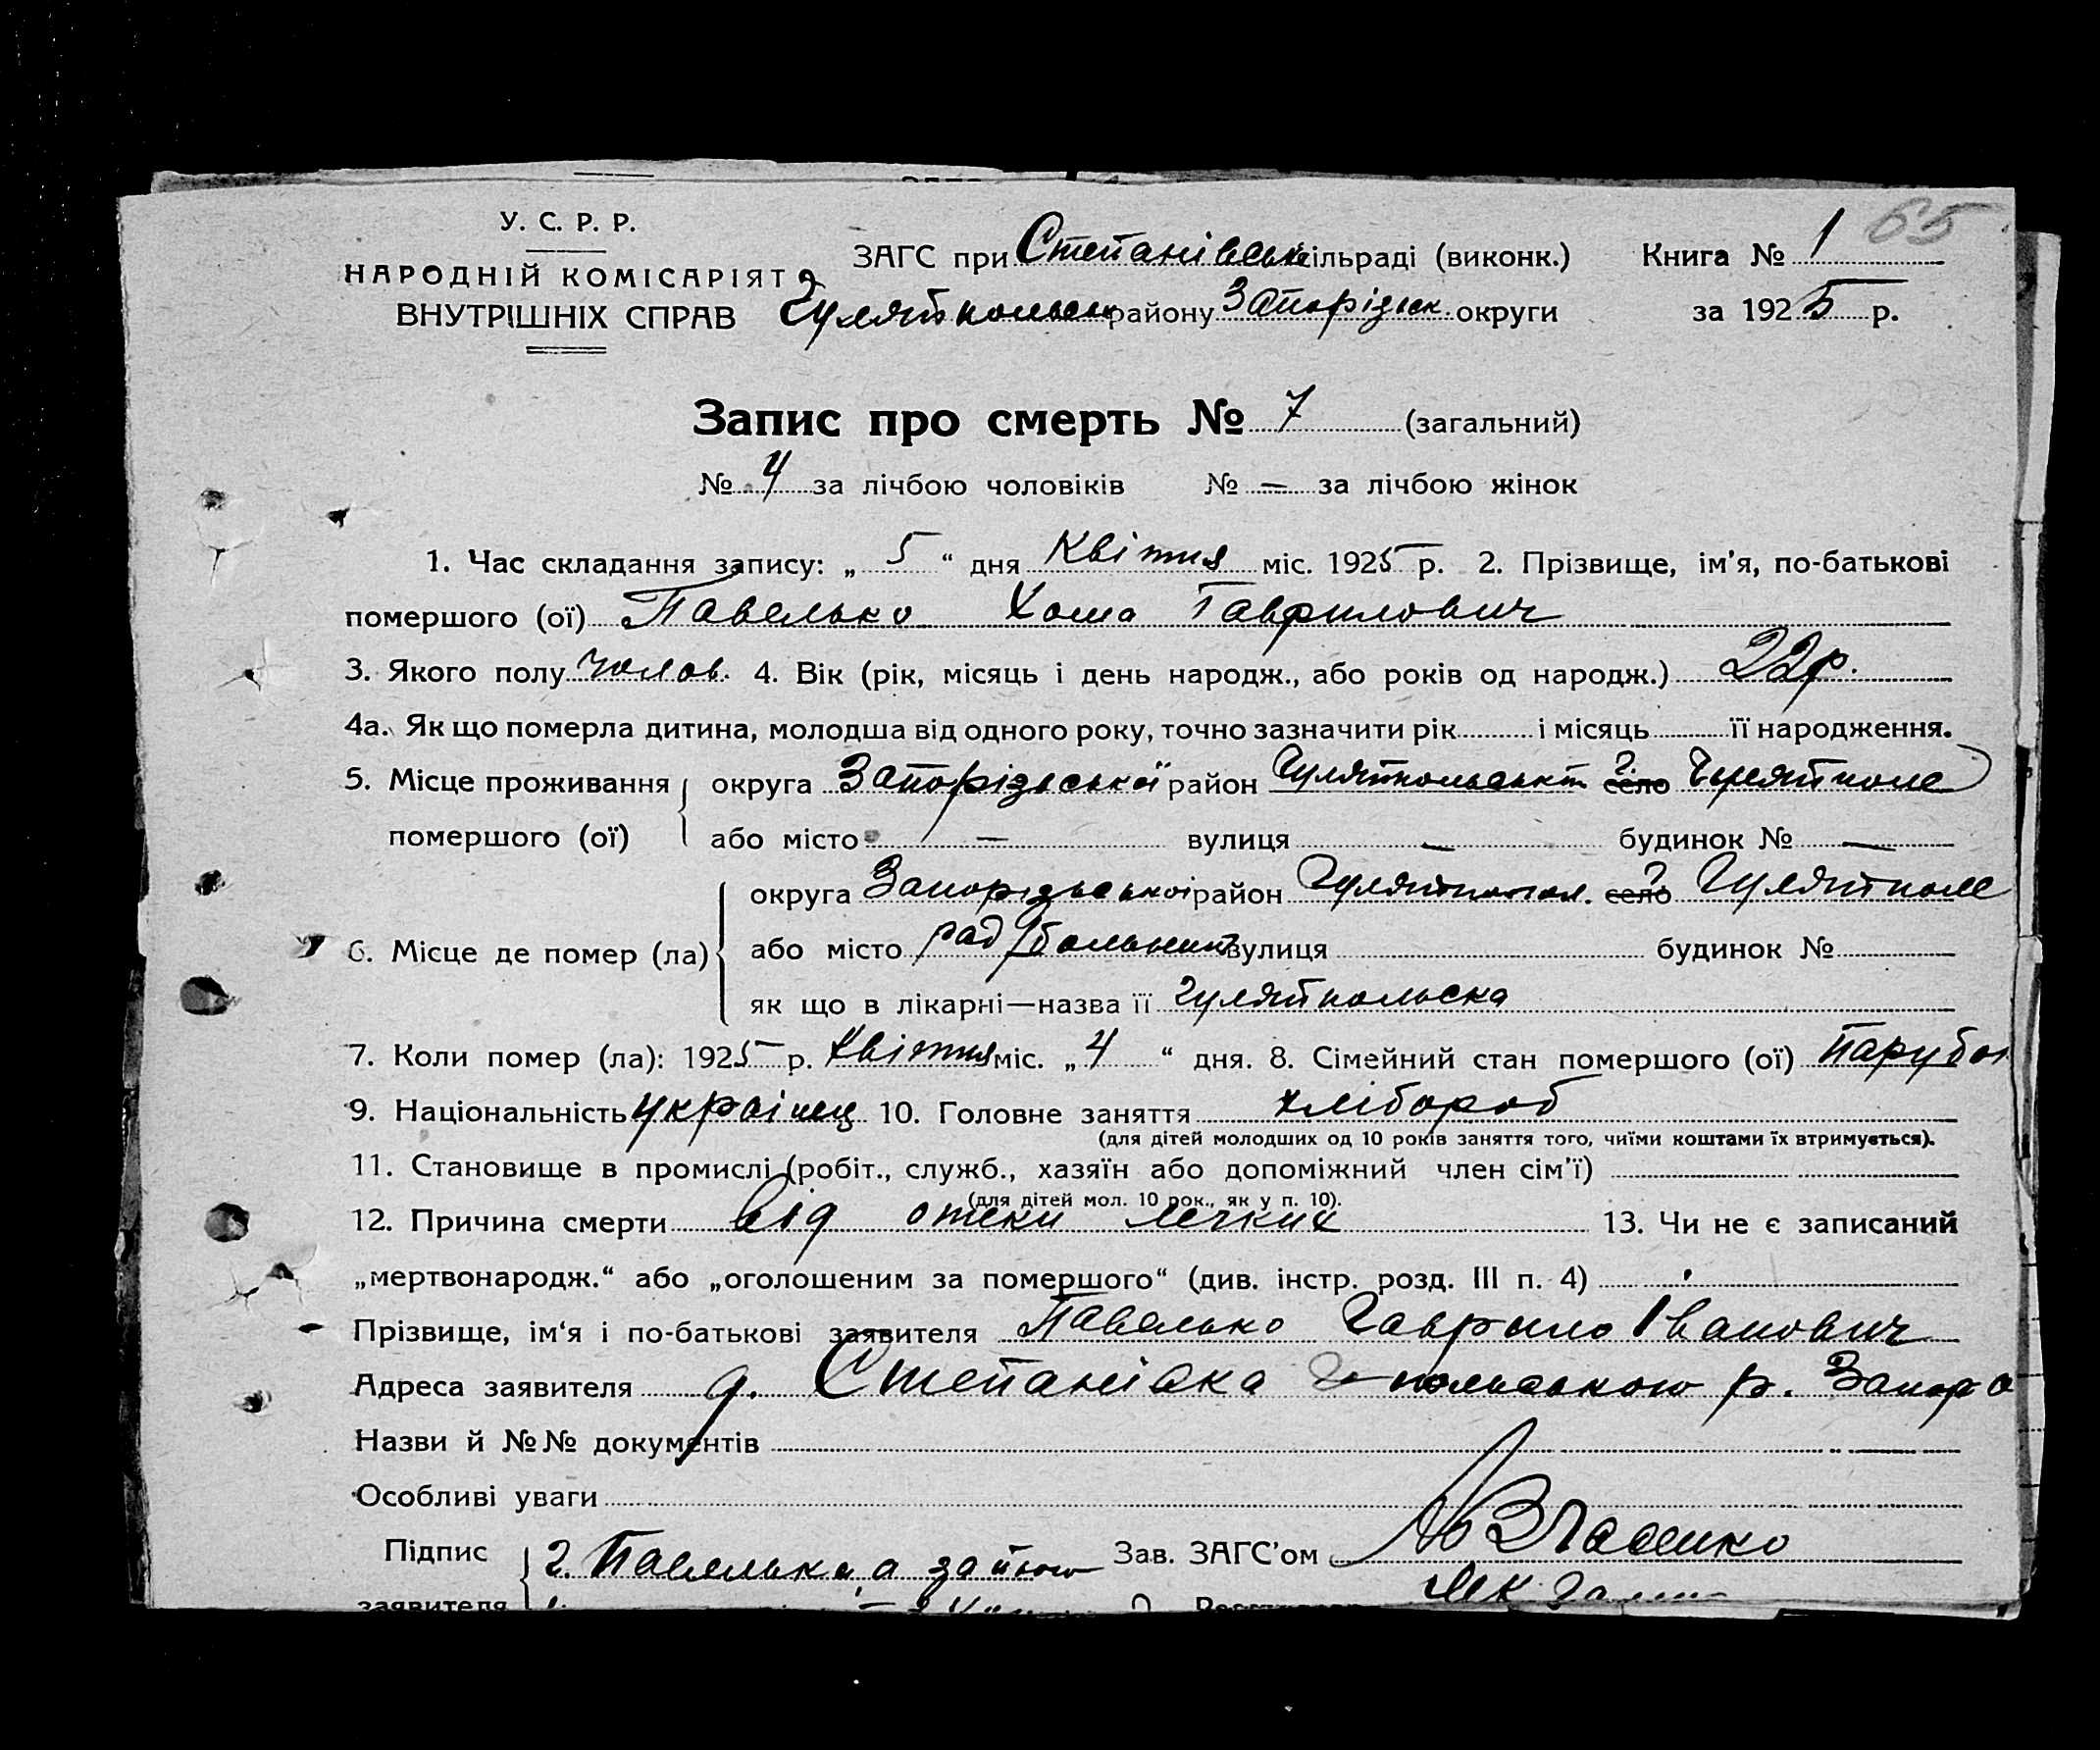 65
У. С. Р. Р.
НАРОДНІЙ КОМІСАРІЯТ
ВНУТРІШНІХ СПРАВ
ЗАГС при Степанівськ сільраді (виконк.) Книга № 1
Гуляйпольськ району Запорізьк. округи за 1925 р.
Запис про смерть № 7 (загальний)
№ 4 за лічбою чоловіків № — за лічбою жінок
1. Час складання запису: „ 5 “ дня Квітня міс. 1925 р. 2. Прізвище, ім’я, по-батькові
помершого (ої) Павелько Хома Гаврилович
3. Якого полу чолов. 4. Вік (рік, місяць і день народж., або років од народж.) 22 р.
4а. Як що померла дитина, молодша від одного року, точно зазначити рік і місяць її народження.
5. Місце проживання округа Запорізької район Гуляйпольськ село Гуляйполе
помершого (ої) або місто — вулиця — будинок № —
округа Запорізької район Гуляйпол. село Гуляйполе
6. Місце де помер (ла) або місто рад больниц вулиця будинок №
як що в лікарні—назва її Гуляйпольска
7. Коли помер (ла): 1925 р. Квітня міс. „ 4 “ дня. 8. Сімейний стан помершого (ої) парубок
9. Національність українец 10. Головне заняття хлібороб
(для дітей молодших од 10 років заняття того, чиїми коштами їх втримується).
11. Становище в промислі (робіт., служб., хазяїн або допоміжний член сім’ї)
(для дітей мол. 10 рок., як у п. 10).
12. Причина смерти від отеки легких 13. Чи не є записаний
„мертвонародж.“ або „оголошеним за помершого“ (див. інстр. розд. III п. 4)
Прізвище, ім‘я і по-батькові заявителя Павелько Гаврило Іванович
Адреса заявителя д. Степанівка Г-польського р. Запор о
Назви й №№ документів
Особливі уваги
Підпис Г. Павелько, а за його Зав. ЗАГС’ом
заявителя